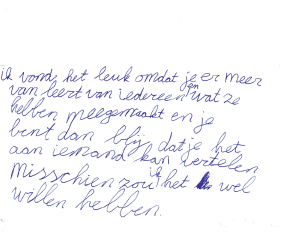 ik vond het leuk omdat je er meer
van leert van iedereen en wat ze
hebben meegemaakt en je
bent dan blij dat je het
aan iemand kan vertelen
Misschien zou ik het wel
willen hebben.